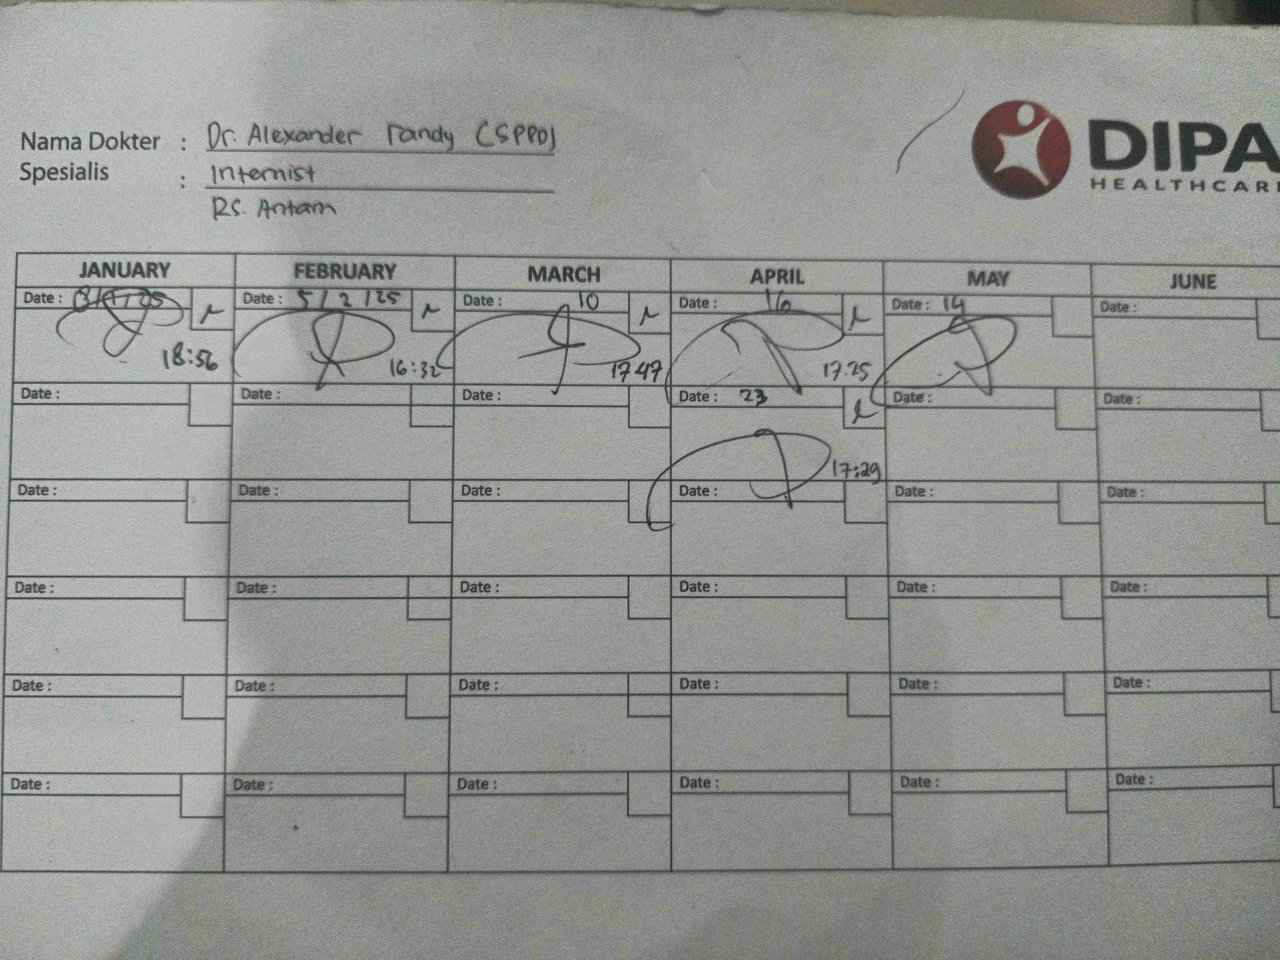 Nama Dokter : Dr. Alexander Tandy (SPPD)
Spesialis : Internist
RS. Antam
DIPA
HEALTHCAR
JANUARY FEBRUARY MARCH APRIL MAY JUNE
Date : Date : 5/2/25 Date : 10 Date : 16 Date : 14 Date :
18:56 16:32 17 47 17.25
Date : Date : Date : Date : 23 Date : Date :
17:29
Date : Date : Date : Date : Date : Date :
Date : Date : Date : Date : Date : Date :
Date : Date : Date : Date : Date : Date :
Date : Date : Date : Date : Date : Date :